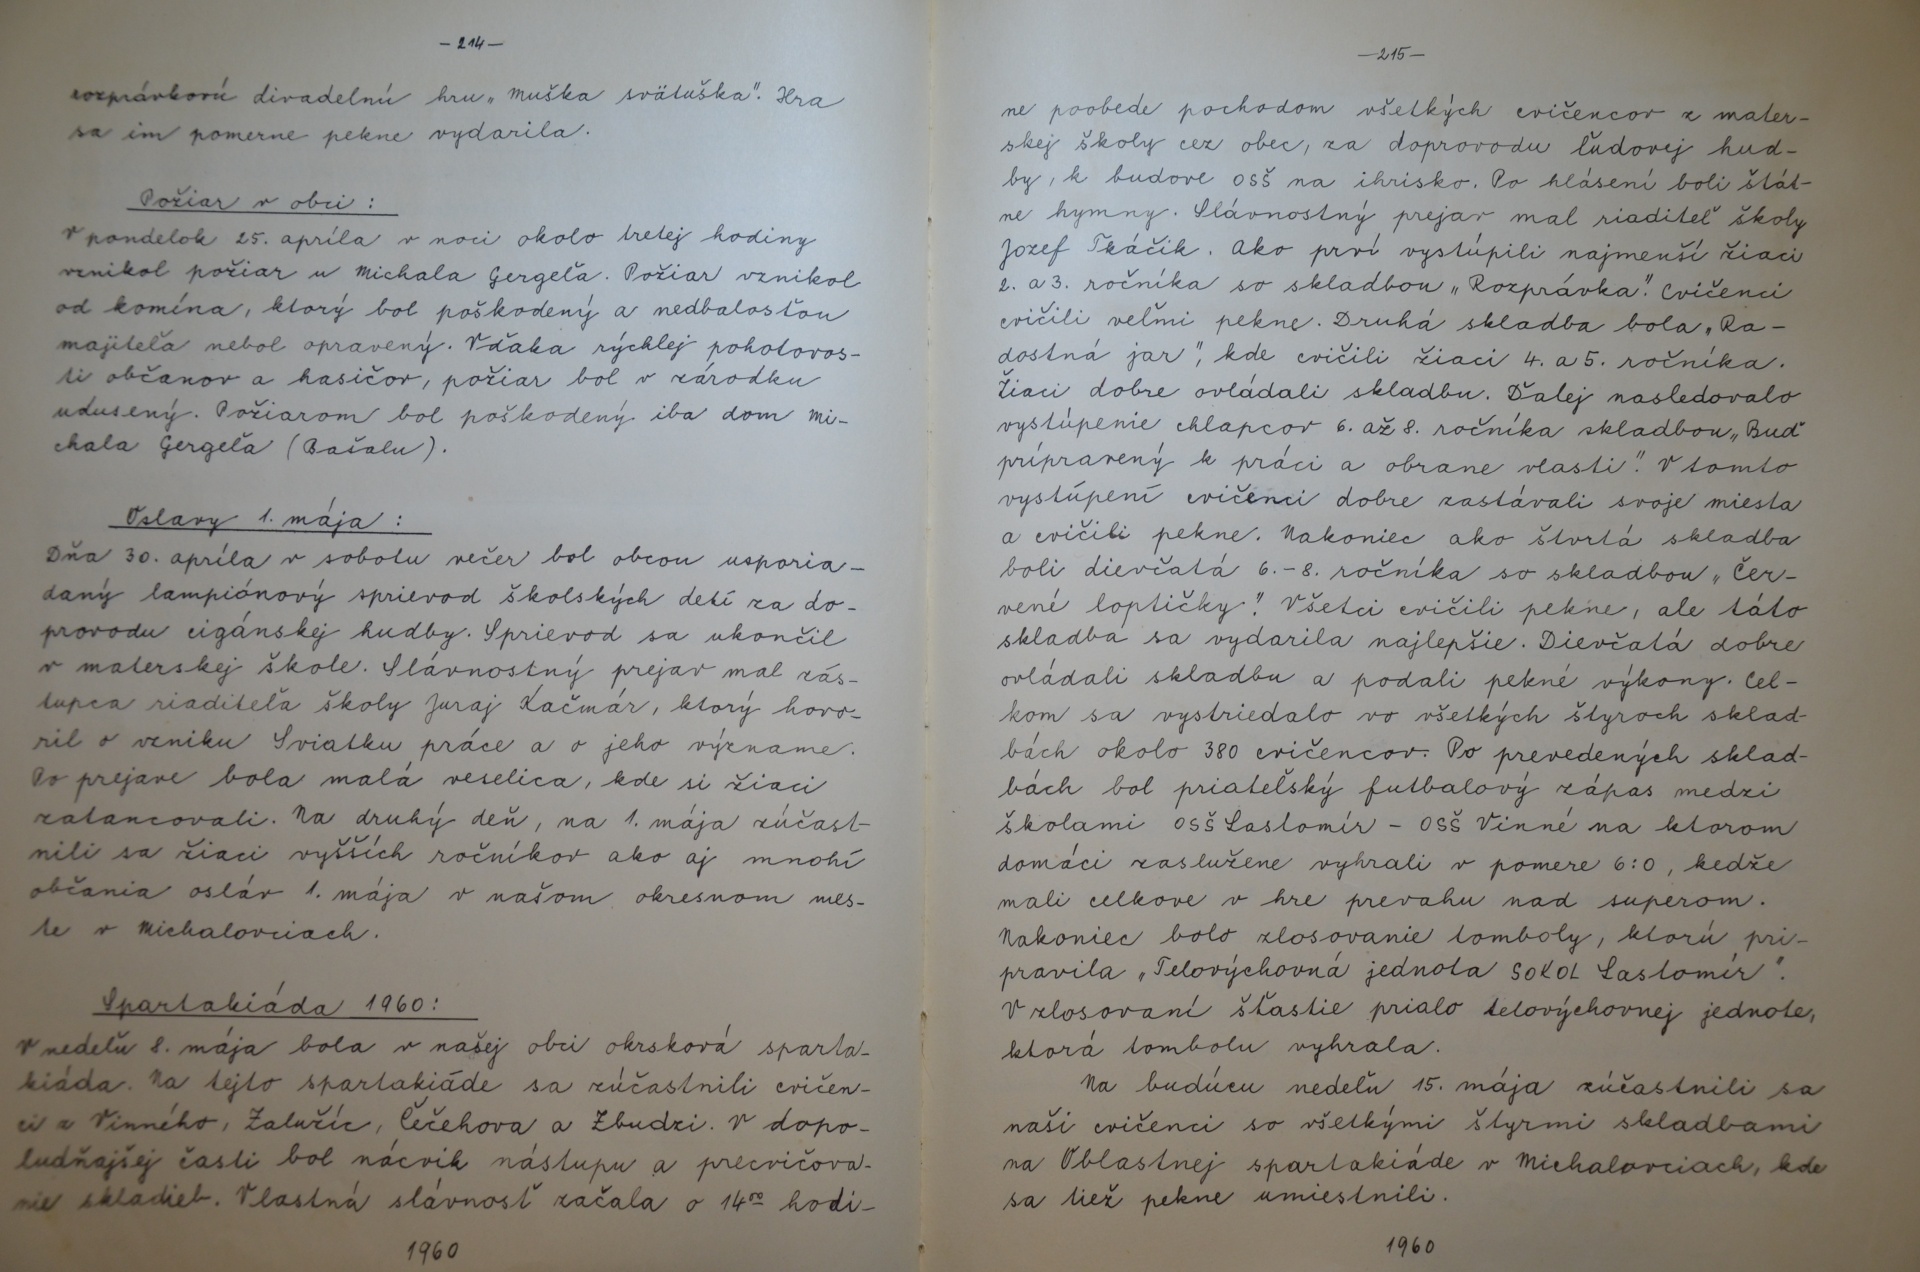 - 214 -
rozprávkovú divadelnú hru „Muška svätuška". Hra
sa im pomerne pekne vydarila.
Požiar v obci :
V pondelok 25. apríla v noci okolo tretej hodiny
vznikol požiar u Michala Gergeľa. Požiar vznikol
od komína, ktorý bol poškodený a nedbalosťou
majiteľa nebol opravený. Vďaka rýchlej pohotovos-
ti občanov a hasičov, požiar bol v zárodku
udusený. Požiarom bol poškodený iba dom Mi-
chala Gergeľa (Bašalu).
Oslavy 1. mája :
Dňa 30. apríla v sobotu večer bol obcou usporia-
daný lampiónový sprievod školských detí za do-
provodu cigánskej hudby. Sprievod sa ukončil
v materskej škole. Slávnostný prejav mal zás-
tupca riaditeľa školy Juraj Kačmár, ktorý hovo-
ril o vzniku Sviatku práce a o jeho význame.
Po prejave bola malá veselica, kde si žiaci
zatancovali. Na druhý deň, na 1. mája zúčast-
nili sa žiaci vyšších ročníkov ako aj mnohí
občania osláv 1. mája v našom okresnom mes-
te v Michalovciach.
Spartakiáda 1960:
V nedeľu 8. mája bola v našej obci okrsková sparta-
kiáda. Na tejto spartakiáde sa zúčastnili cvičen-
ci z Vinného, Zalužíc, Čečehova a Zbudzi. V dopo-
ludňajšej časti bol nácvik nástupu a precvičova-
nie skladieb. Vlastná slávnosť začala o 14⁰⁰ hodi-
1960
- 215 -
ne poobede pochodom všetkých cvičencov z mater-
skej školy cez obec, za doprovodu ľudovej hud-
by, k budove OSŠ na ihrisko. Po hlásení boli štát-
ne hymny. Slávnostný prejav mal riaditeľ školy
Jozef Tkáčik. Ako prví vystúpili najmenší žiaci
2. a 3. ročníka so skladbou „Rozprávka". Cvičenci
cvičili veľmi pekne. Druhá skladba bola „Ra-
dostná jar", kde cvičili žiaci 4. a 5. ročníka.
Žiaci dobre ovládali skladbu. Ďalej nasledovalo
vystúpenie chlapcov 6. až 8. ročníka skladbou „Buď
pripravený k práci a obrane vlasti". V tomto
vystúpení cvičenci dobre zastávali svoje miesta
a cvičili pekne. Nakoniec ako štvrtá skladba
boli dievčatá 6.-8. ročníka so skladbou „Čer-
vené loptičky". Všetci cvičili pekne, ale táto
skladba sa vydarila najlepšie. Dievčatá dobre
ovládali skladbu a podali pekné výkony. Cel-
kom sa vystriedalo vo všetkých štyroch sklad-
bách okolo 380 cvičencov. Po prevedených sklad-
bách bol priateľský futbalový zápas medzi
školami OSŠ Lastomír - OSŠ Vinné na ktorom
domáci zaslužene vyhrali v pomere 6:0, kedže
mali celkove v hre prevahu nad superom.
Nakoniec bolo zlosovanie tomboly, ktorú pri-
pravila „Telovýchovná jednota SOKOL Lastomír".
V zlosovaní šťastie prialo telovýchovnej jednote,
ktorá tombolu vyhrala.
Na budúcu nedeľu 15. mája zúčastnili sa
naši cvičenci so všetkými štyrmi skladbami
na Oblastnej spartakiáde v Michalovciach, kde
sa tiež pekne umiestnili.
1960